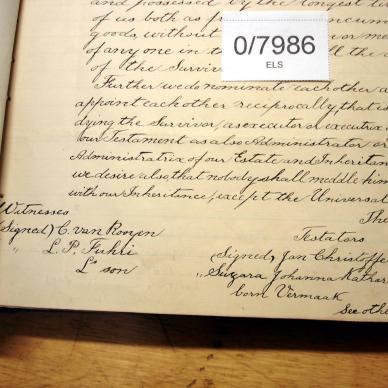 and possessed by the longest li
of us both as fr
goods, without
of any one in t
of the Surviv
0/7986
ELS
Further we do nominate each other a
appoint each other reciprocally, that is
dying the Survivor, as executor or executrix
our Testament as also Administrator or
Administratrix of our Estate and Inheritan
we desire also that nobody shall meddle him
with our Inheritance, except the Universal
Thu
Witnesses
Testators
(Signed) C. van Rooyen
" L. P. Fuhri
Ls son
(Signed) Jan Christoffe
" Suzara Johanna Kathar
born Vermaak
See othe